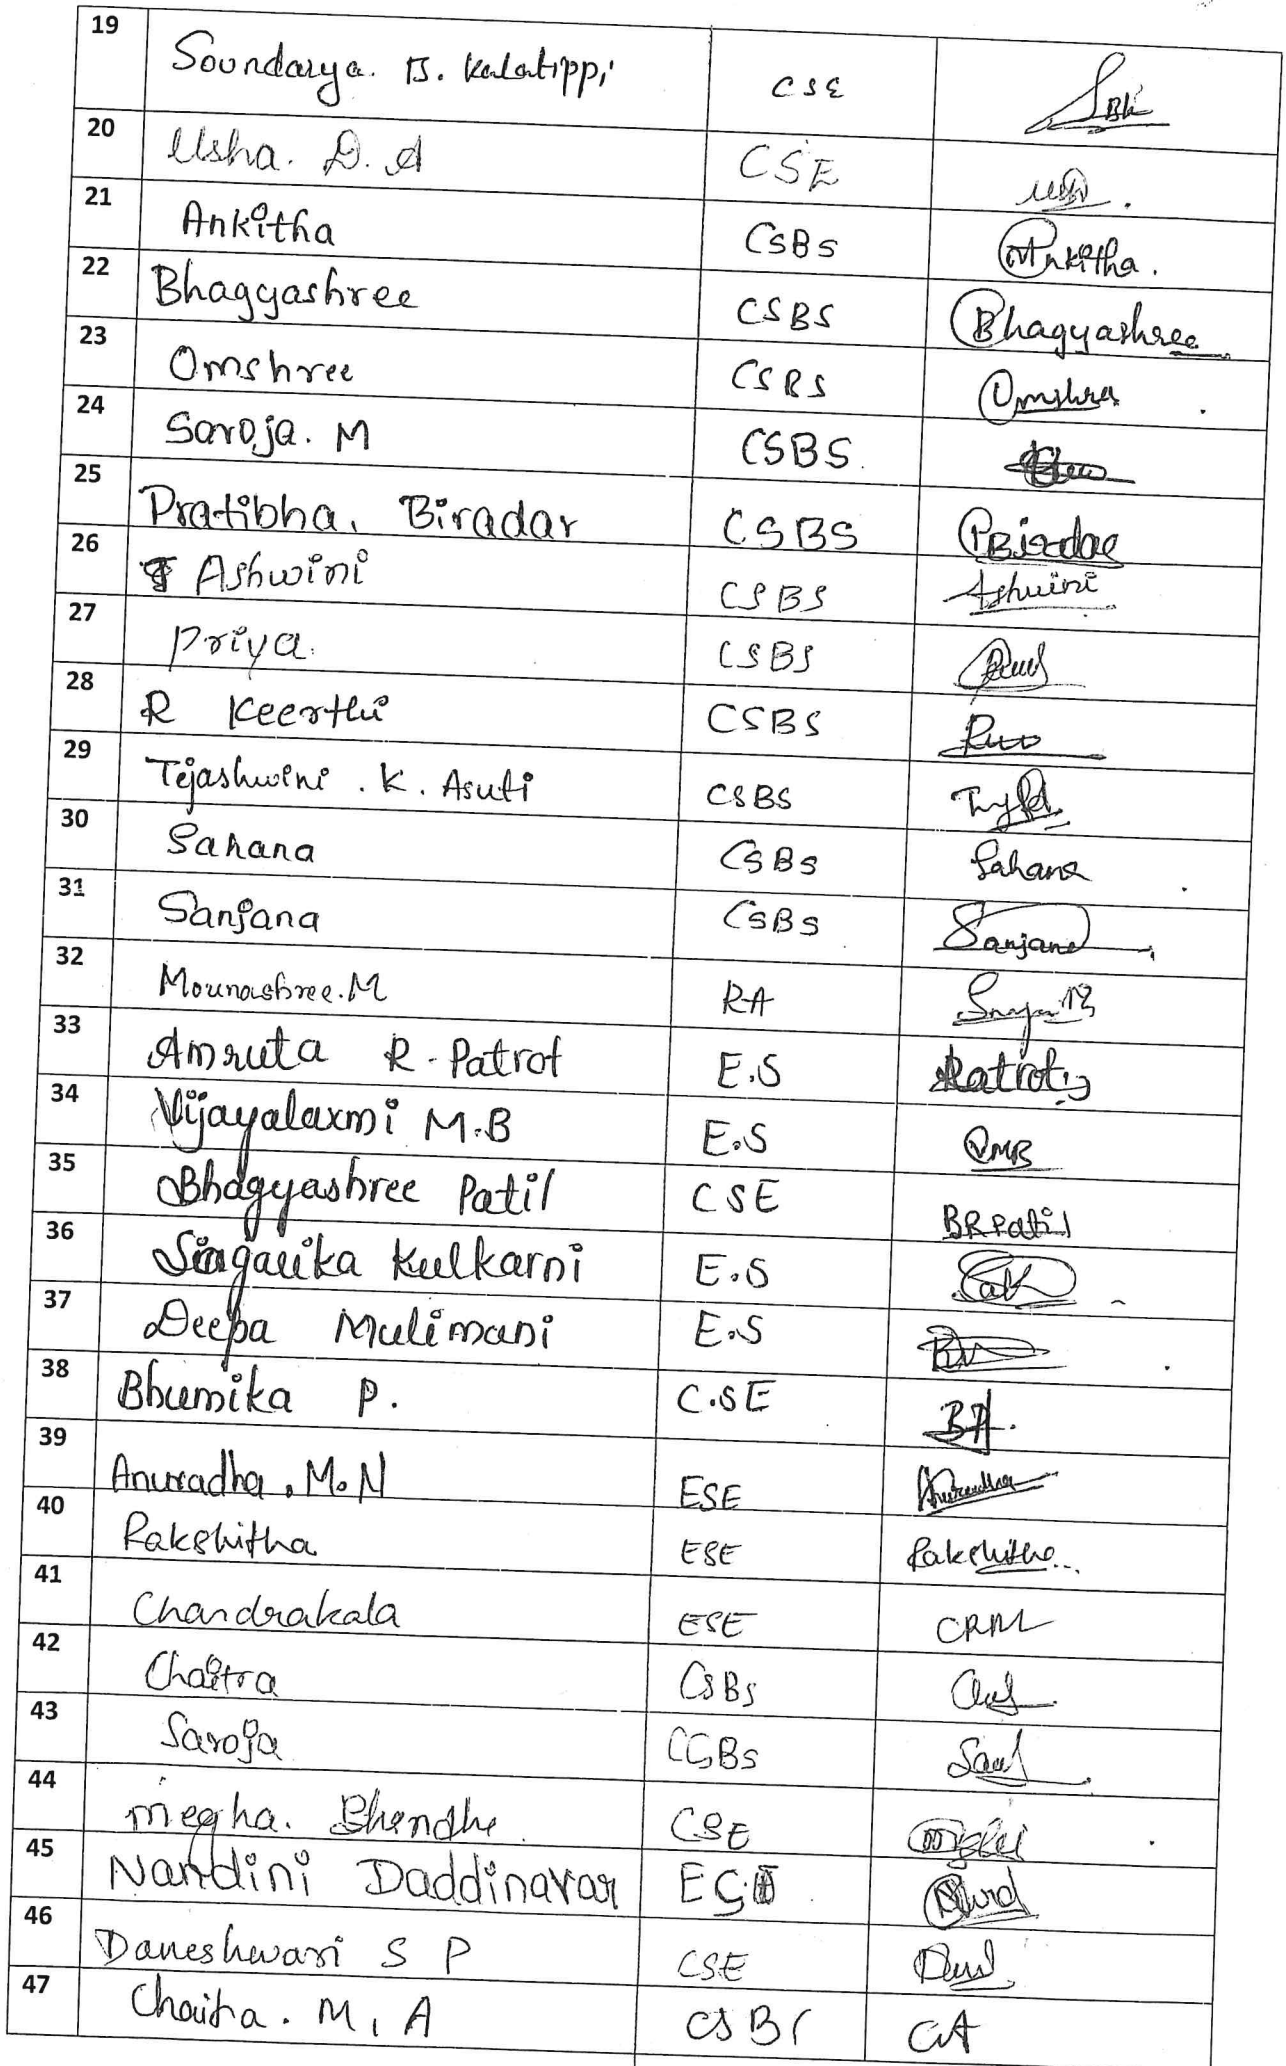 19 Soundarya. B. Kalatippi CSE SBK
20 Usha. D. A CSE
21 Ankitha CSBS Ankitha.
22 Bhagyashree CSBS Bhagyashree
23 Omshree CSBS Omshree
24 Saroja. M CSBS
25 Pratibha. Biradar CSBS PBiradar
26 Ashwini CSBS Ashwini
27 Priya. CSBS
28 R Keerthi CSBS
29 Tejashwini . K. Asuti CSBS
30 Sahana CSBS Sahana
31 Sanjana CSBS Sanjana
32 Mounashree. M RA
33 Amruta R. Patrot E.S Patrot
34 Vijayalaxmi M.B E.S VMB
35 Bhagyashree Patil CSE BRPatil
36 Sagarika Kulkarni E.S
37 Deepa Mulimani E.S
38 Bhumika P. C.SE
39 Anuradha. M. N ESE Anuradha
40 Rakshitha ESE Rakshitha
41 Chandrakala ESE CRM
42 Chaitra CSBS
43 Saroja CSBS
44 Megha. Shendhe CSE
45 Nandini Daddinavar
46 Daneshwari S P CSE
47 Chaitra. M. A CSBS